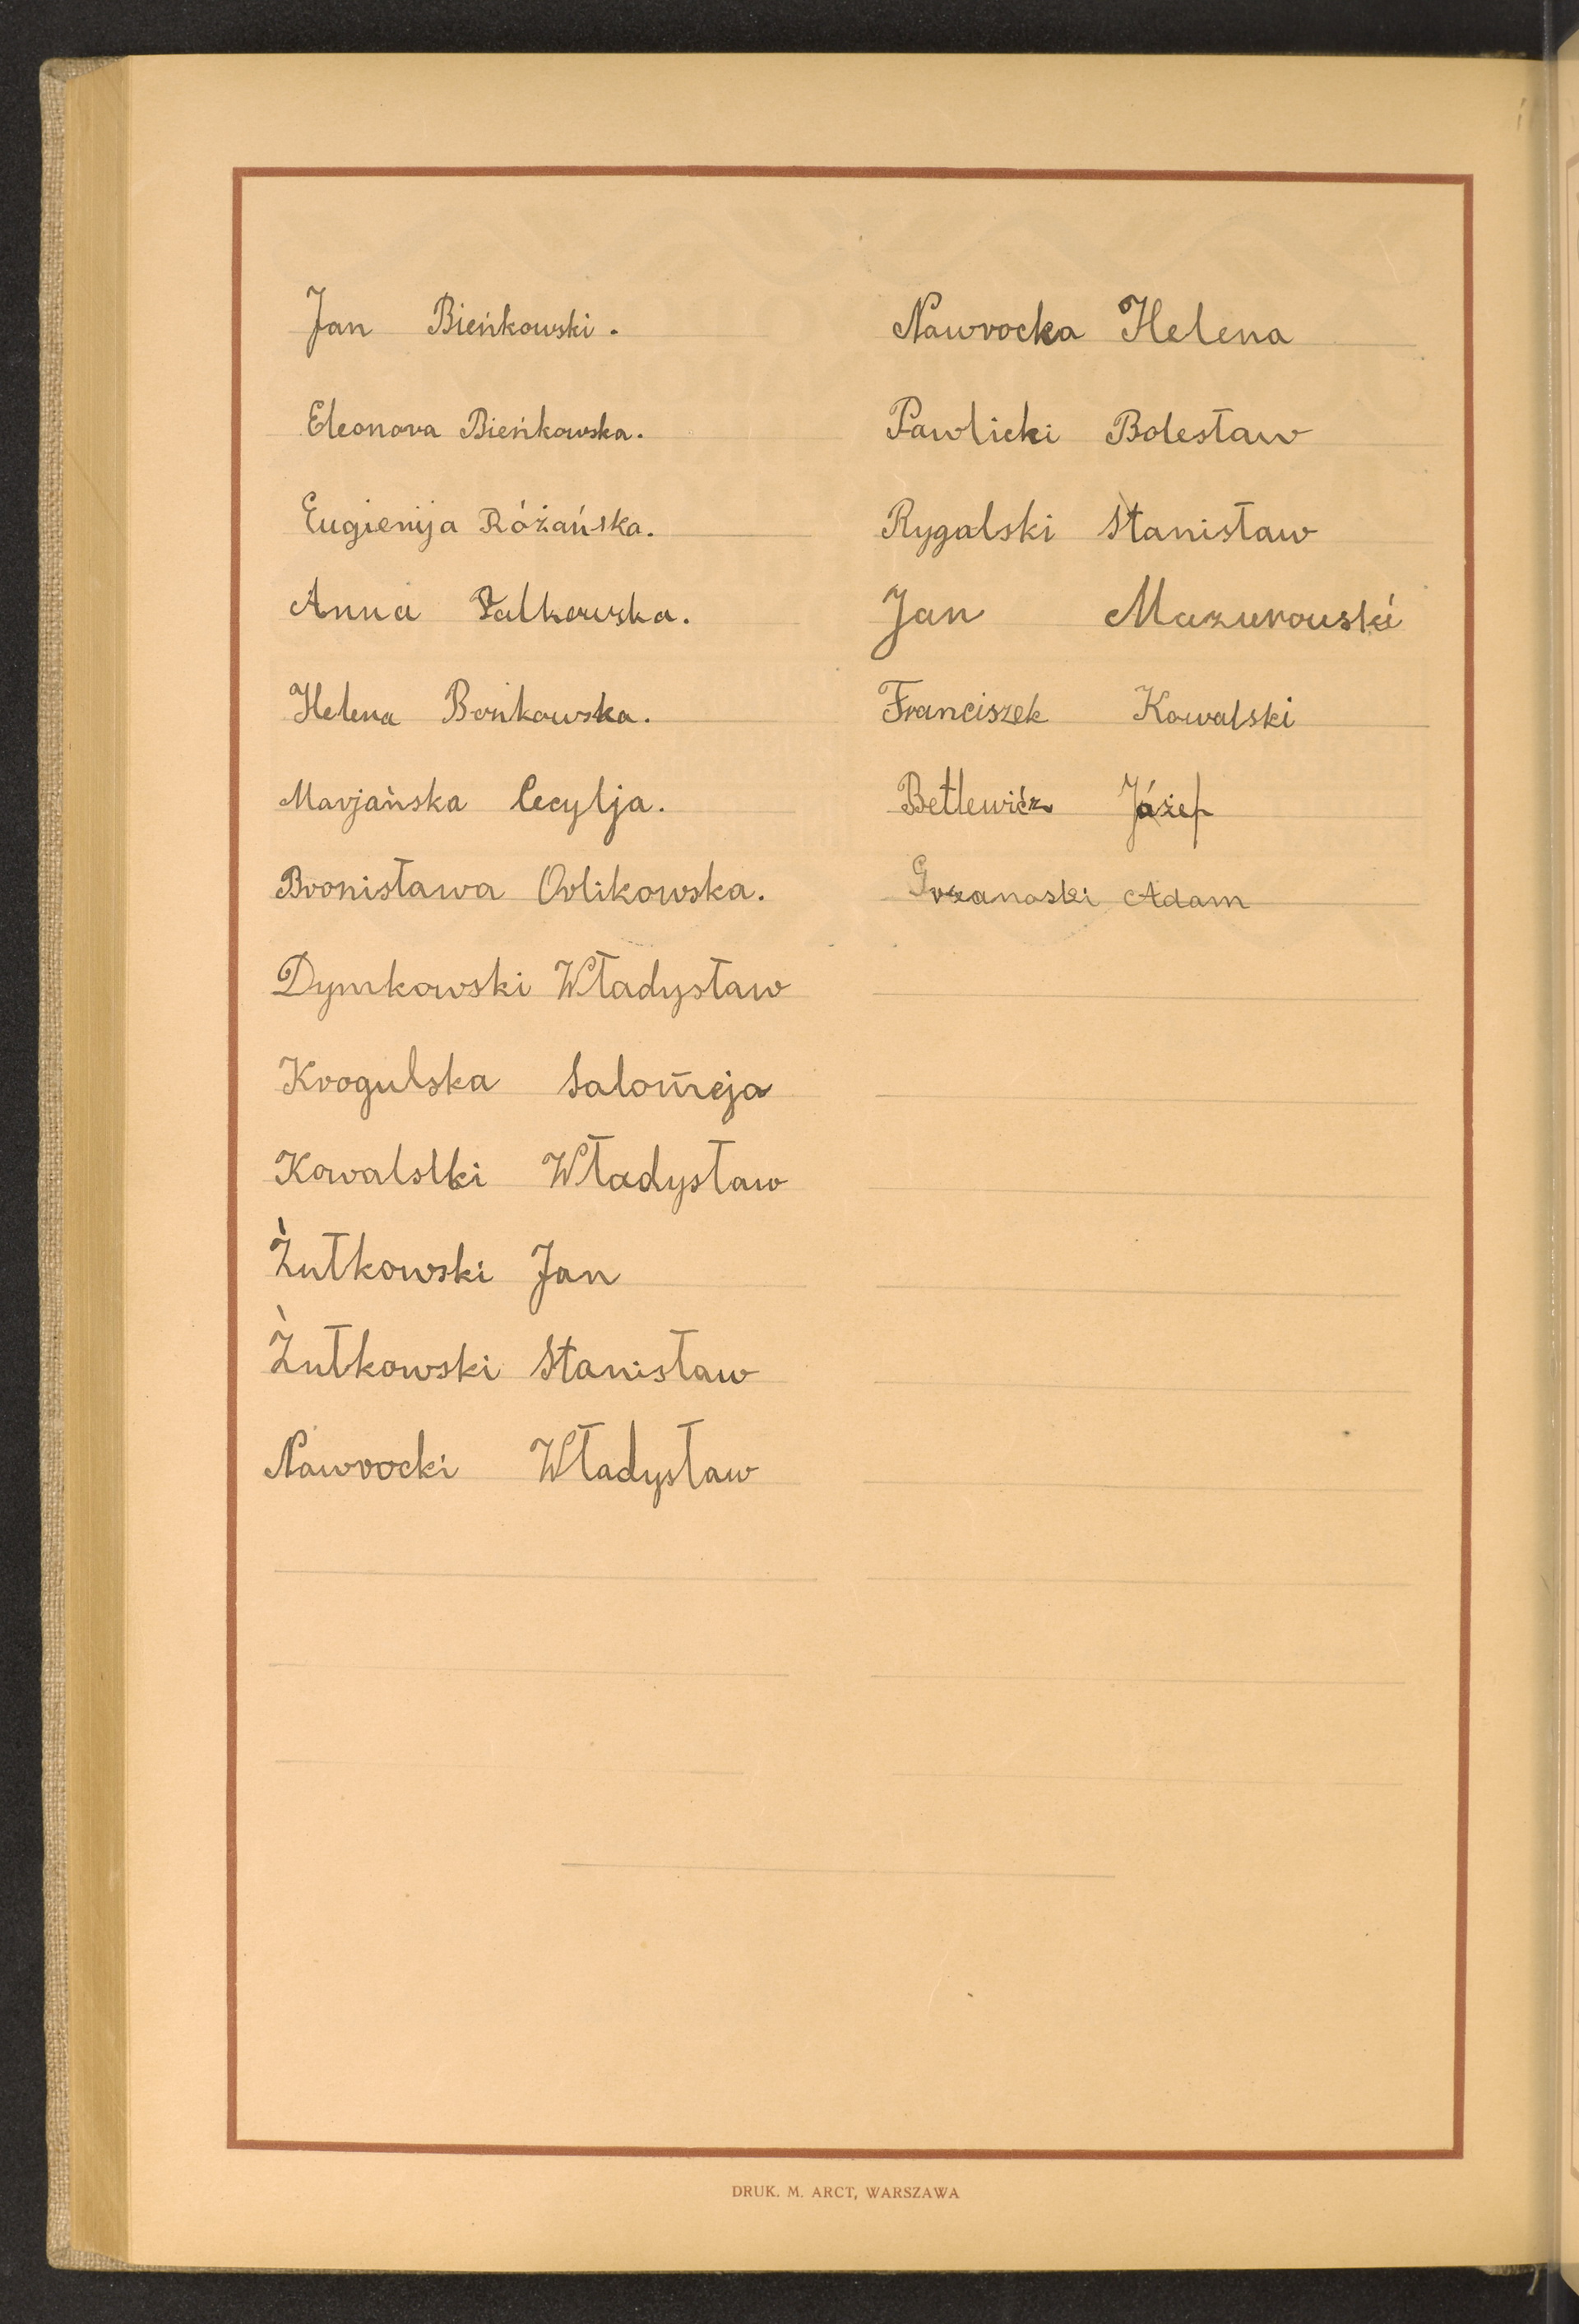 Jan Bieńkowski.
Eleonora Bieńkowska.
Eugienija Różańska.
Anna Falkowska.
Helena Bońkowska.
Marjańska Cecylja.
Bronisława Orlikowska.
Dymkowski Władysław
Krogulska Salomeja
Kowalski Władysław
Żułkowski Jan
Żułkowski Stanisław
Nawrocki Władysław
Nawrocka Helena
Pawlicki Bolesław
Rygalski Stanisław
Jan Mazurouski
Franciszek Kowalski
Betlewicz Józef
Adam
DRUK. M. ARCT, WARSZAWA